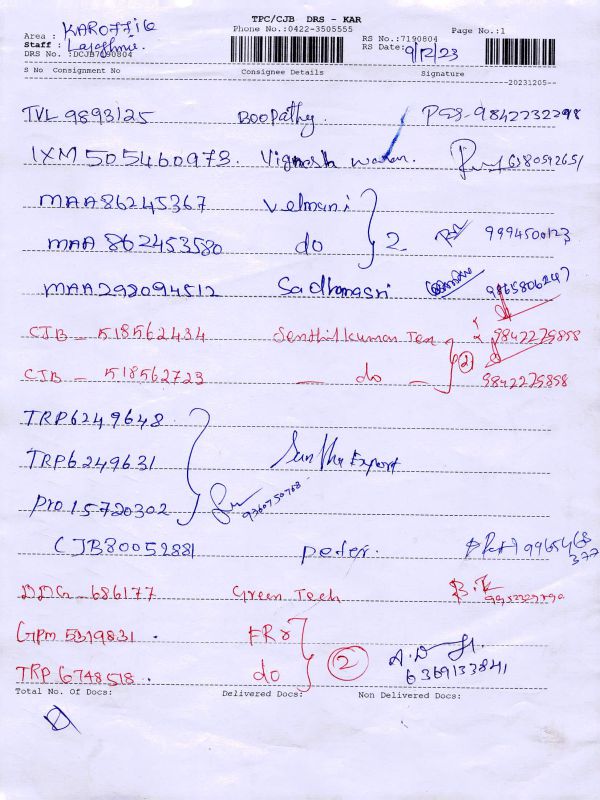 TPC/CJB DRS - KAR
Phone No.:0422-3505555
Page No.:1
Area : KAROTTIG
Staff :
DRS No. :DCJB7190804
RS No.:7190804
RS Date: 9/12/23
S No Consignment No Consignee Details Signature
20231205--
TVL 9893125 Boopathy. PSS-9842232298
IXM 505460973. Vignesh waran. 6380592651
MAA86245367 Velmani
MAA 862453580 do 2 9994500123
MAA298094512 Sadhanasri 9865806247
CJB - 518562434 Senthilkumar Tex 9842275858
CJB - 518562723 — do — (2) 9842275858
TRP6249648
TRP6249631 Export
Pro 15720302 9360750768
CJB80052881 peder. 9965468377
DDG - 686177 Green Tech B.K
GPM 5319831 . FRr
TRP 6748518 . do (2) 6369133841
Total No. Of Docs: Delivered Docs: Non Delivered Docs: